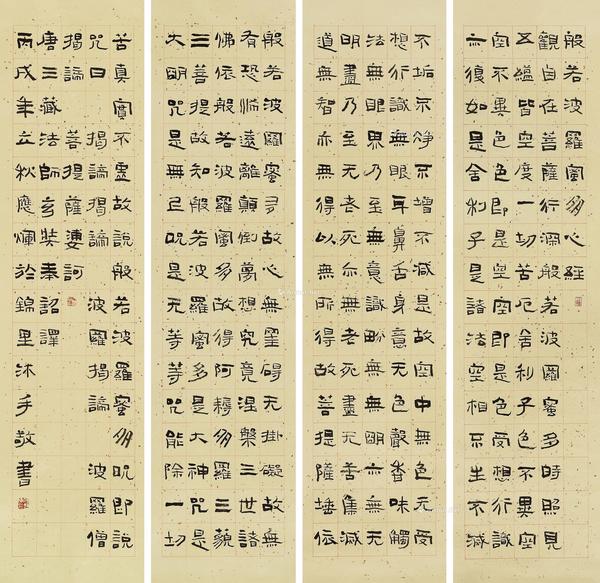 般若波羅蜜多心經
觀自在菩薩行深般若波羅蜜多時照見
五蘊皆空度一切苦厄舍利子色不異空
空不異色色即是空空即是色受想行識
亦復如是舍利子是諸法空相不生不滅
不垢不淨不增不減是故空中無色无受
想行識無眼耳鼻舌身意无色聲香味觸
法無眼界乃至無意識界無無明亦無无
明盡乃至无老死亦无老死盡无苦集滅
道無智亦無得以無所得故菩提薩埵依
般若波羅蜜多故心無罣碍无掛礙故無
有恐怖遠離顛倒夢想究竟涅槃三世諸
佛依般若波羅蜜多故得阿耨多羅三藐
三菩提故知般若波羅蜜多是大神咒是
大明咒是無上呪是无等等咒能除一切
苦真實不虛故說般若波羅蜜多呪即說
咒曰 揭諦揭諦 波羅揭諦 波羅僧
揭諦 菩提薩婆訶
唐三藏法師玄奘奉詔譯
丙戌年立秋應煇於錦里沐手敬書